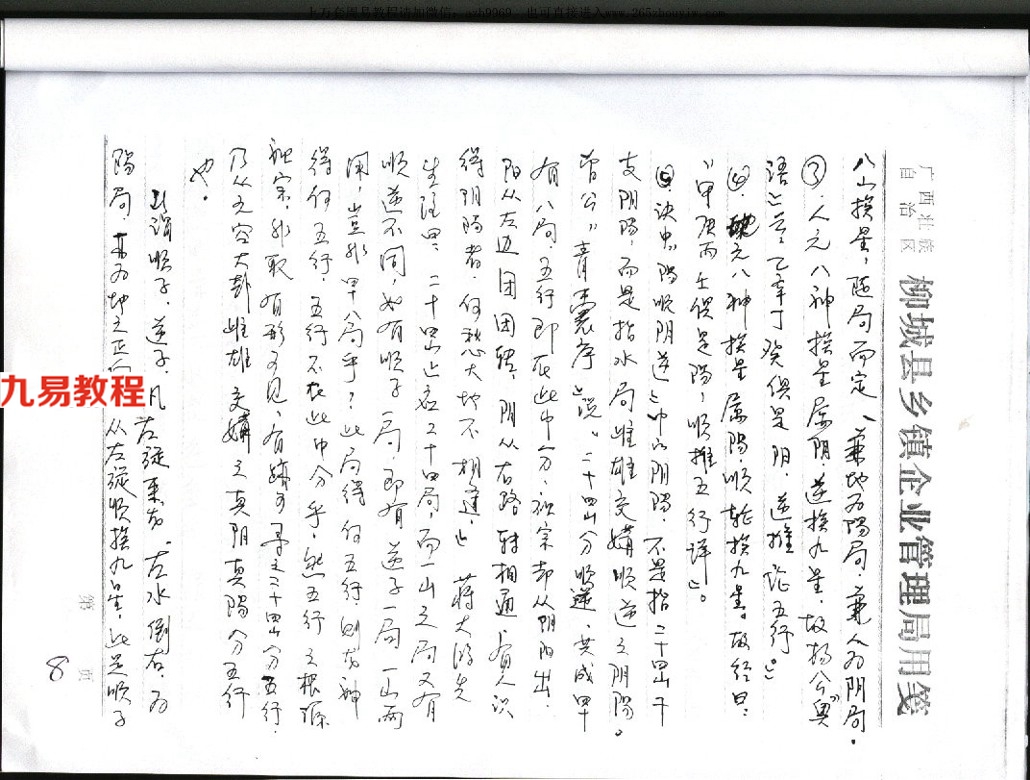 上万套周易教程请加微信：ash9969，也可直接进入www.265zhouyiw.com
广西壮族
自治区
柳城县乡镇企业管理局用笺
八山挨星，随局而定，兼地为阳局，兼人为阴局。
③、人元八神挨星属阴，逆挨九星，故杨公《奥
语》云："乙辛丁癸俱是阴，逆推论五行"。
④、地元八神挨星属阳顺轮挨九星。故经曰：
"甲庚丙壬俱是阳，顺推五行详"。
⑤、诀中"阳顺阴逆"中的阴阳，不是指二十四山干
支阴阳，而是指水局雌雄交媾顺逆之阴阳。
曾公《青囊序》说："二十四山分顺逆，共成四十
有八局，五行即在此中分，祖宗却从阴阳出，
阳从左边团团转，阴从右路转相通，有人识
得阴阳者，何愁大地不相逢"。蒋大鸿先
生注曰：二十四山止有二十四局，而一山之局又有
顺逆不同，如有顺子一局，即有逆子一局，一山两
用，岂非四十八局乎？此局得何五行，则彼神
得何五行，五行不在此中分乎，然五行之根源
祖宗，非取有形可见，有迹可寻之二十四山分五行，
乃从元空大卦雌雄交媾之真阴真阳分五行
也。
所谓顺子、逆子，凡左旋来龙，左水倒右，为
阳局，
从左旋顺挨九星，此是顺子
九易教程
第 页
8